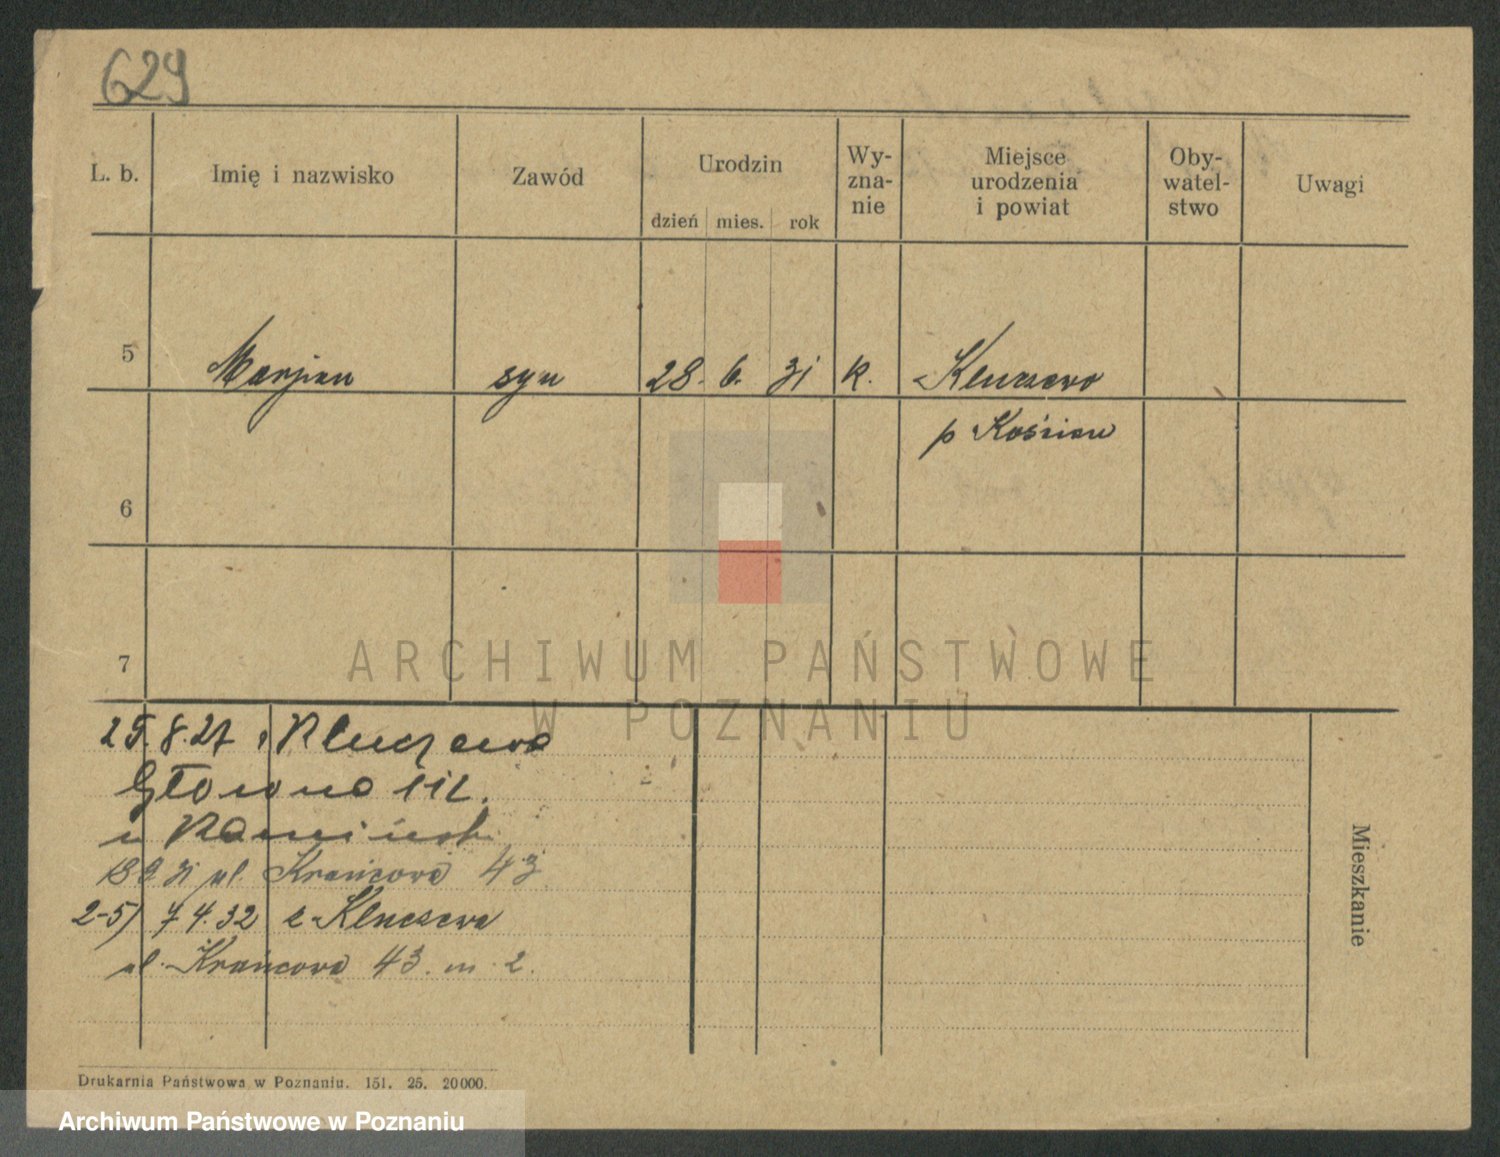 629
L. b. Imię i nazwisko Zawód Urodzin dzień mies. rok Wy-zna-nie Miejsce urodzenia i powiat Oby-watel-stwo Uwagi
5 Marjan syn 28. 6. 31 k. Kluczewo
p Kościan
6
7
25.8.27 Kluczewo
Główna
u Kamiński
18 9 31 ul. Krańcowa 43
2-5) 7 4. 32 z Kluczewa
ul. Krańcowa 43. m 2.
Mieszkanie
Drukarnia Państwowa w Poznaniu. 151. 25. 20000.
ARCHIWUM PAŃSTWOWE
W POZNANIU
Archiwum Państwowe w Poznaniu